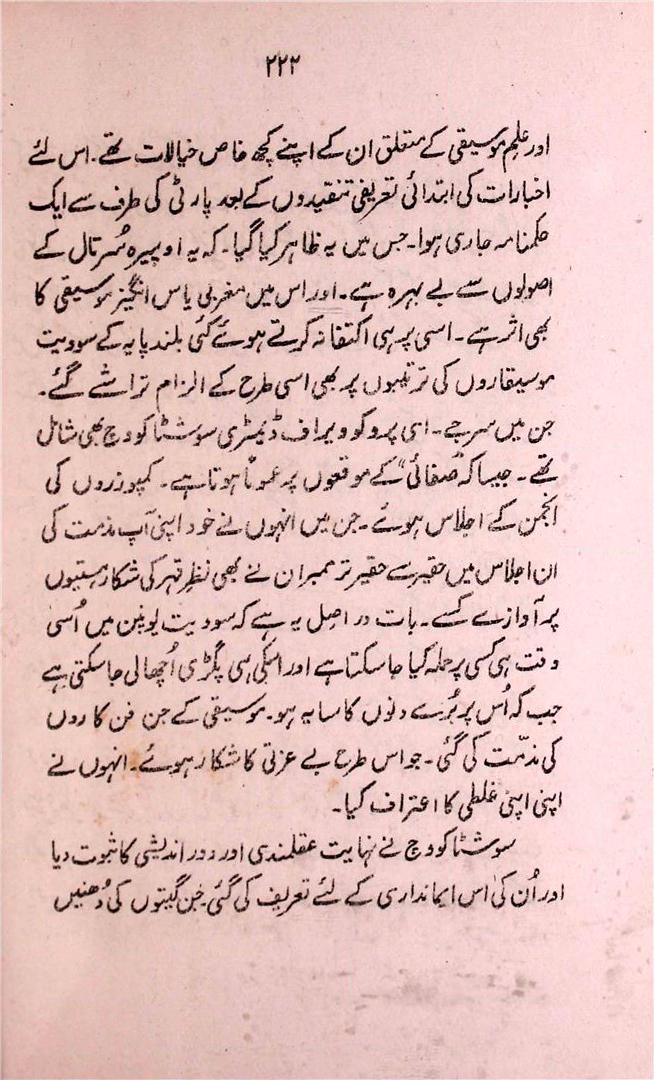 ۲۲۲
اور علمِ موسیقی کے متعلق ان کے اپنے کچھ خاص خیالات تھے۔ اس لئے
اخبارات کی ابتدائی تعریفی تنقیدوں کے بعد پارٹی کی طرف سے ایک
حکمنامہ جاری ہوا۔ جس میں یہ ظاہر کیا گیا۔ کہ یہ اوپیرہ سُر تال کے
اصولوں سے بے بہرہ ہے۔ اور اس میں مغربی یاس انگیز موسیقی کا
بھی اثر ہے۔ اسی پر ہی اکتفا نہ کرتے ہوئے کئی بلند پایہ کے سوویت
موسیقاروں کی ترتیبوں پر بھی اسی طرح کے الزام تراشے گئے۔
جن میں سرجے۔ ای پروکوویراف ڈیمٹری سوشٹاکووچ بھی شامل
تھے۔ جیسا کہ "صفائی" کے موقعوں پر عموماً ہوتا ہے۔ کمپوزروں کی
انجمن کے اجلاس ہوئے۔ جن میں انہوں نے خود اپنی آپ مذمت کی
ان اجلاس میں حقیر سے حقیر تر ممبران نے بھی نظرِ قہر کی شکار ہستیوں
پر آوازے کسے۔ بات در اصل یہ ہے کہ سوویت یونین میں اُسی
وقت ہی کسی پر حملہ کیا جا سکتا ہے اور اسکی ہی پگڑی اُچھالی جا سکتی ہے
جب کہ اُس پر بُرے دنوں کا سایہ ہو۔ موسیقی کے جن فن کاروں
کی مذمّت کی گئی۔ جو اس طرح بے عزتی کا شکار ہوئے۔ انہوں نے
اپنی اپنی غلطی کا اعتراف کیا۔
سوشٹاکووچ نے نہایت عقلمندی اور دور اندیشی کا ثبوت دیا
اور اُن کی اس ایمانداری کے لئے تعریف کی گئی۔ جن گیتوں کی دُھنیں